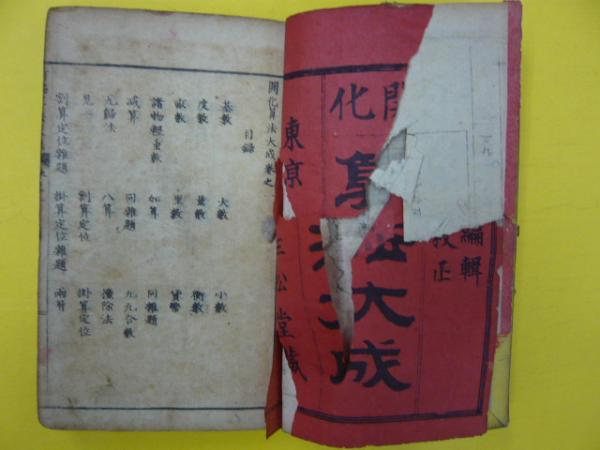 編輯
校正
開化
算法大成
東京
三松堂藏
開化算法大成卷之
目録
基數 大數 小數
度數 量數 衡數
畝數 里數 貨幣
諸物輕重數
加算 同雜題
減算 同雜題 九九合數
九歸法 八算 撞除法
見一 割算定位 掛算定位
割算定位雜題 掛算定位雜題 兩替